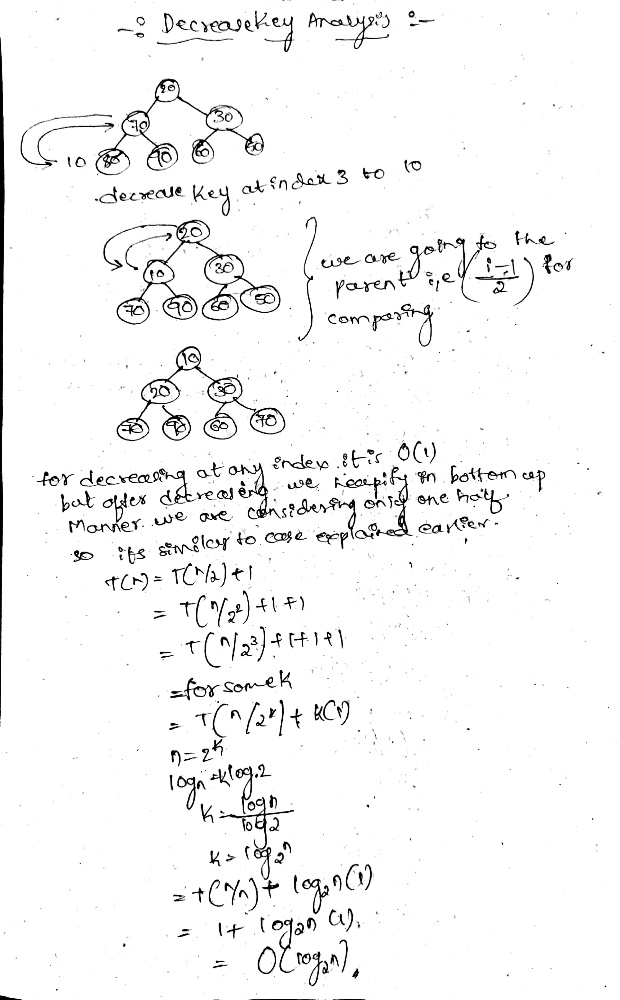 -: DecreaseKey Analysis :-
20
70 30
10 80 90 60 50
decrease key at index 3 to 10
20
10 30
70 90 60 50
we are going to the
parent i,e (i-1/2) for
comparing
10
20 30
70 90 60 70
for decreasing at any index it is O(1)
but after decreasing we heapify in bottom up
Manner. we are considering only one half
so its similar to case explained earlier.
T(n) = T(n/2)+1
= T(n/2²)+1+1
= T(n/2³)+1+1+1
=for some k
= T(n/2ᵏ)+ k(1)
n=2ᵏ
logn =klog.2
k = logn/log2
k = log₂n
= T(n/n)+ log₂n(1)
= 1+ log₂n (1).
= O(log₂n).